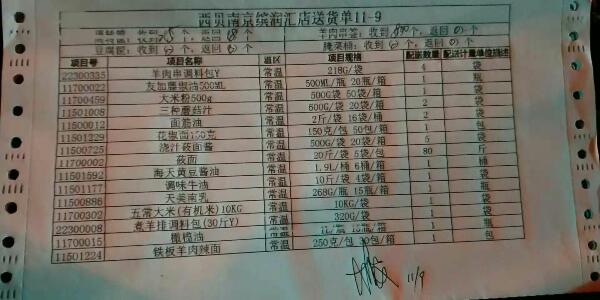 西贝南京缤润汇店送货单11-9
收到 个，返回 个， 羊肉串签：收到 个，返回 0 个，
豆腐筐：收到 个，返回 个， 腌菜桶：收到 个，返回 个，
项目号 项目名称 温区 项目规格 配送数量 配送计量单位描述
22300335 羊肉串调料包Y 常温 218G/袋 4 袋
11700022 友加藤椒油500ML 常温 500ML/瓶 20瓶/箱 1 瓶
11700459 大米粉500g 常温 500G 50袋/箱 1 袋
11501008 三种蘑菇汁 常温 600G/袋 20袋/箱 2 袋
11500012 面筋油 常温 2斤/袋 16袋/桶 2 袋
11501229 花椒面150克 常温 150克/包 50包/箱 1 包
11500725 浇汁莜面酱 常温 500G/袋 20袋/箱 5 袋
11700002 莜面 常温 20斤/袋 5袋/包 80 斤
11501592 海天黄豆酱油 常温 1.9L/桶 6桶/箱 1 桶
11501177 调味牛油 常温 10斤/袋 4袋/箱 1 袋
11500886 天美南乳 常温 268G/瓶 15瓶/箱 1 瓶
11700302 五常大米(有机米)10KG 常温 10KG/袋 1 袋
22300008 煮羊排调料包(30斤Y) 常温 320G/袋 1 袋
11700015 橄榄油 常温 1 瓶
11501224 铁板羊肉辣面 常温 250克/包 30包/箱 1 包
11/9